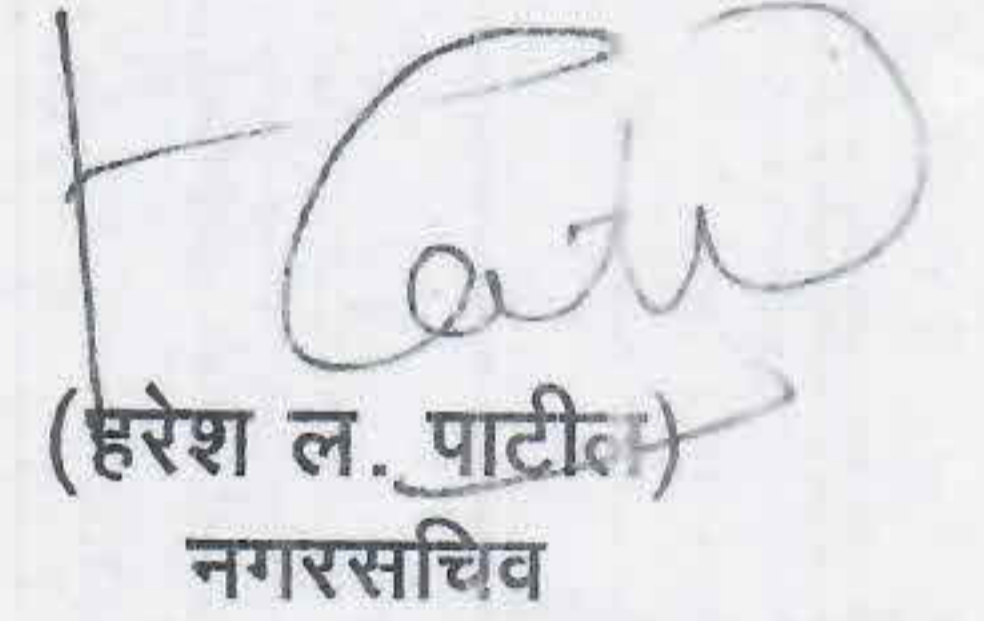 (हरेश ल. पाटील)
नगरसचिव